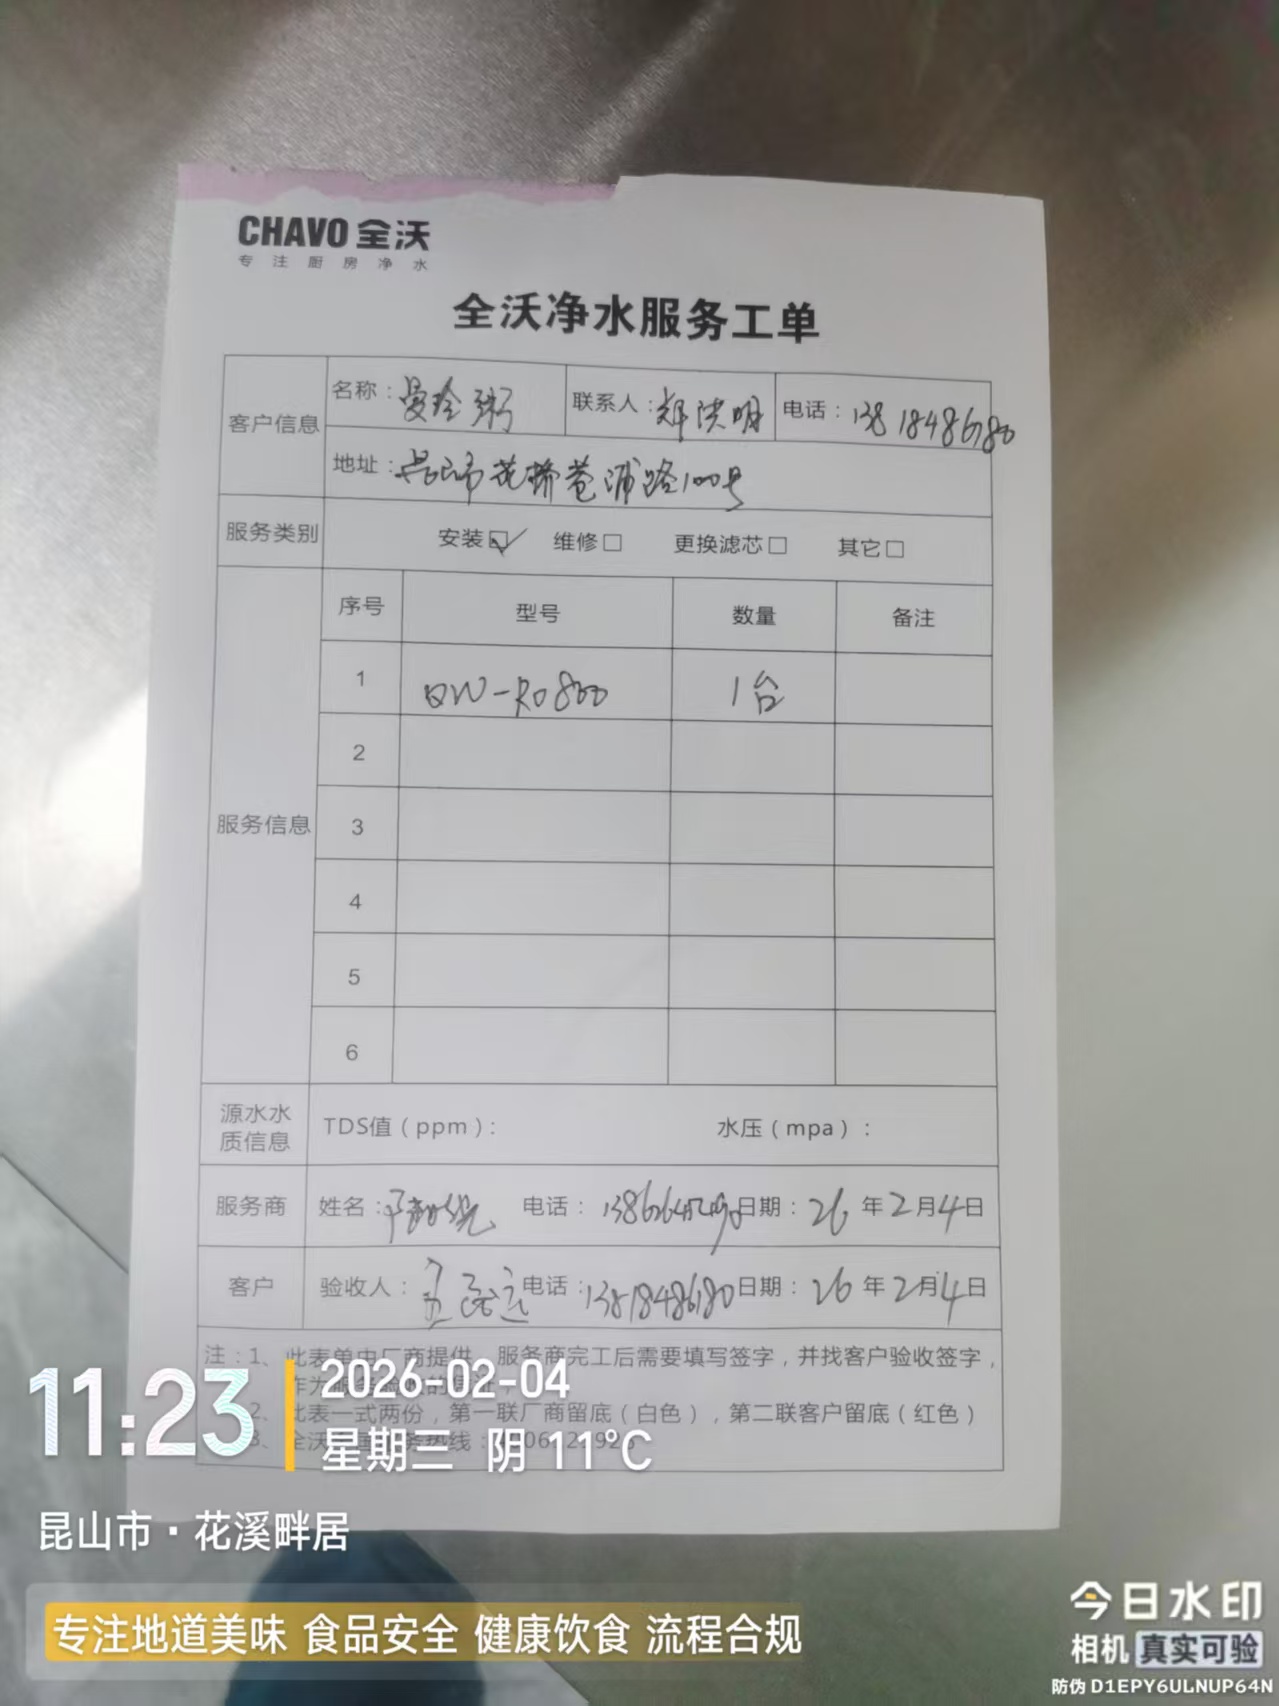 CHAVO 全沃
专注厨房净水
全沃净水服务工单
客户信息 名称：曼玲粥 联系人：郑洪明 电话：13818486780
地址：昆山市花桥莒浦路100号
服务类别 安装☑ 维修□ 更换滤芯□ 其它□
服务信息 序号 型号 数量 备注
1 QW-RO800 1台
2
3
4
5
6
源水水质信息 TDS值（ppm）： 水压（mpa）：
服务商 姓名： 电话： 日期：26年2月4日
客户 验收人： 电话：13818486780 日期：26年2月4日
注：1、此表单由厂商提供，服务商完工后需要填写签字，并找客户验收签字，
2、此表一式两份，第一联厂商留底（白色），第二联客户留底（红色）
3、全沃 热线：
11:23
2026-02-04
星期三 阴 11°C
昆山市·花溪畔居
专注地道美味 食品安全 健康饮食 流程合规
今日水印
相机 真实可验
防伪 D1EPY6ULNUP64N